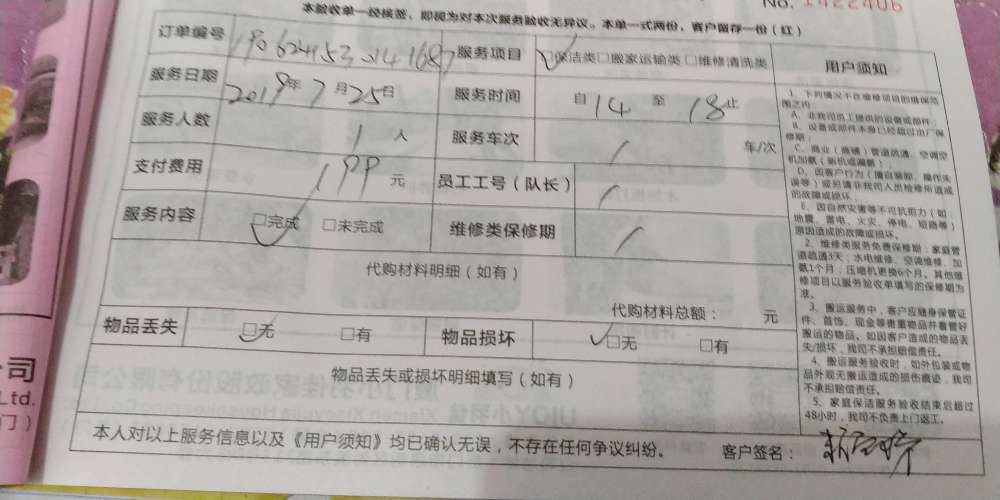 No. 1422406
本验收单一经核签，即视为对本次服务验收无异议。本单一式两份，客户留存一份（红）
订单编号 服务项目 ☑保洁类□搬家运输类□维修清洗类 用户须知
服务日期 2019年7月25日 服务时间 自14至18止
服务人数 1人 服务车次 / 车/次
支付费用 199元 员工工号（队长） /
服务内容 ☑完成 □未完成 维修类保修期 /
代购材料明细（如有）
代购材料总额： 元
物品丢失 ☑无 □有 物品损坏 ☑无 □有
物品丢失或损坏明细填写（如有）
本人对以上服务信息以及《用户须知》均已确认无误，不存在任何争议纠纷。 客户签名：
1、下列情况不在维修项目的维保范
围之内：
A、非我司员工提供的设备或部件；
B、设备或部件本身已经超过出厂保
修期；
C、商业（商铺）管道疏通、空调空
机加氨（新机或漏氨）；
D、因客户行为（擅自装卸、操作失
误等）或另请非我司人员检修所造成
的故障或损坏；
E、因自然灾害等不可抗拒力（如：
地震、雷电、火灾、停电、短路等）
原因造成的故障或损坏。
2、维修类服务免费保修期：家庭管
道疏通3天；水电维修、空调维修、加
氨1个月；压缩机更换6个月。其他维
修项目以服务验收单填写的保修期为
准。
3、搬运服务中，客户应随身保管证
件、首饰、现金等贵重物品并看管好
搬运的物品。如因客户造成的物品丢
失/损坏，我司不承担赔偿责任。
4、搬运服务验收时，如外包装或物
品外观无搬运造成的损伤痕迹，我司
不承担赔偿责任。
5、家庭保洁服务验收结束后超过
48小时，我司不负责上门返工。
公司
Ltd.
门）